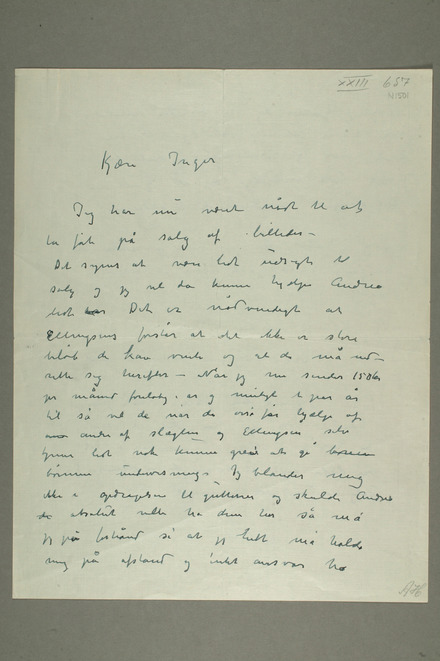 XXIII 687
Kjære Inger
Jeg har nu været nødt til at
ta fat på salg af billeder –
Det synes at være lidt udsigt til
salg og jeg vil da kunne hjælpe Andrea
lidt Det er nødvendigt at
Ellingsens forstår at det ikke er store
beløb de kan vente og at de må ind-
rette sig herefter – Når jeg nu sender 150 Kr
pr måned foreløbig er og muligt
til så vil de når de også får hjælp af
andre af slægten og Ellingsen selv
tjener lidt nok kunne greie at gi
børnene undervisning – Jeg blander mig
ikke i opdragelsen til guttene og skulde Andrea
absolut ville ha dem her så må
jeg på forhånd si at jeg helt må holde
mig på afstand og intet ansvar ha